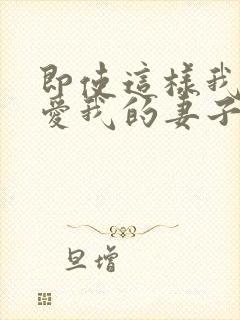 即使這樣我
愛我的妻子
旦增